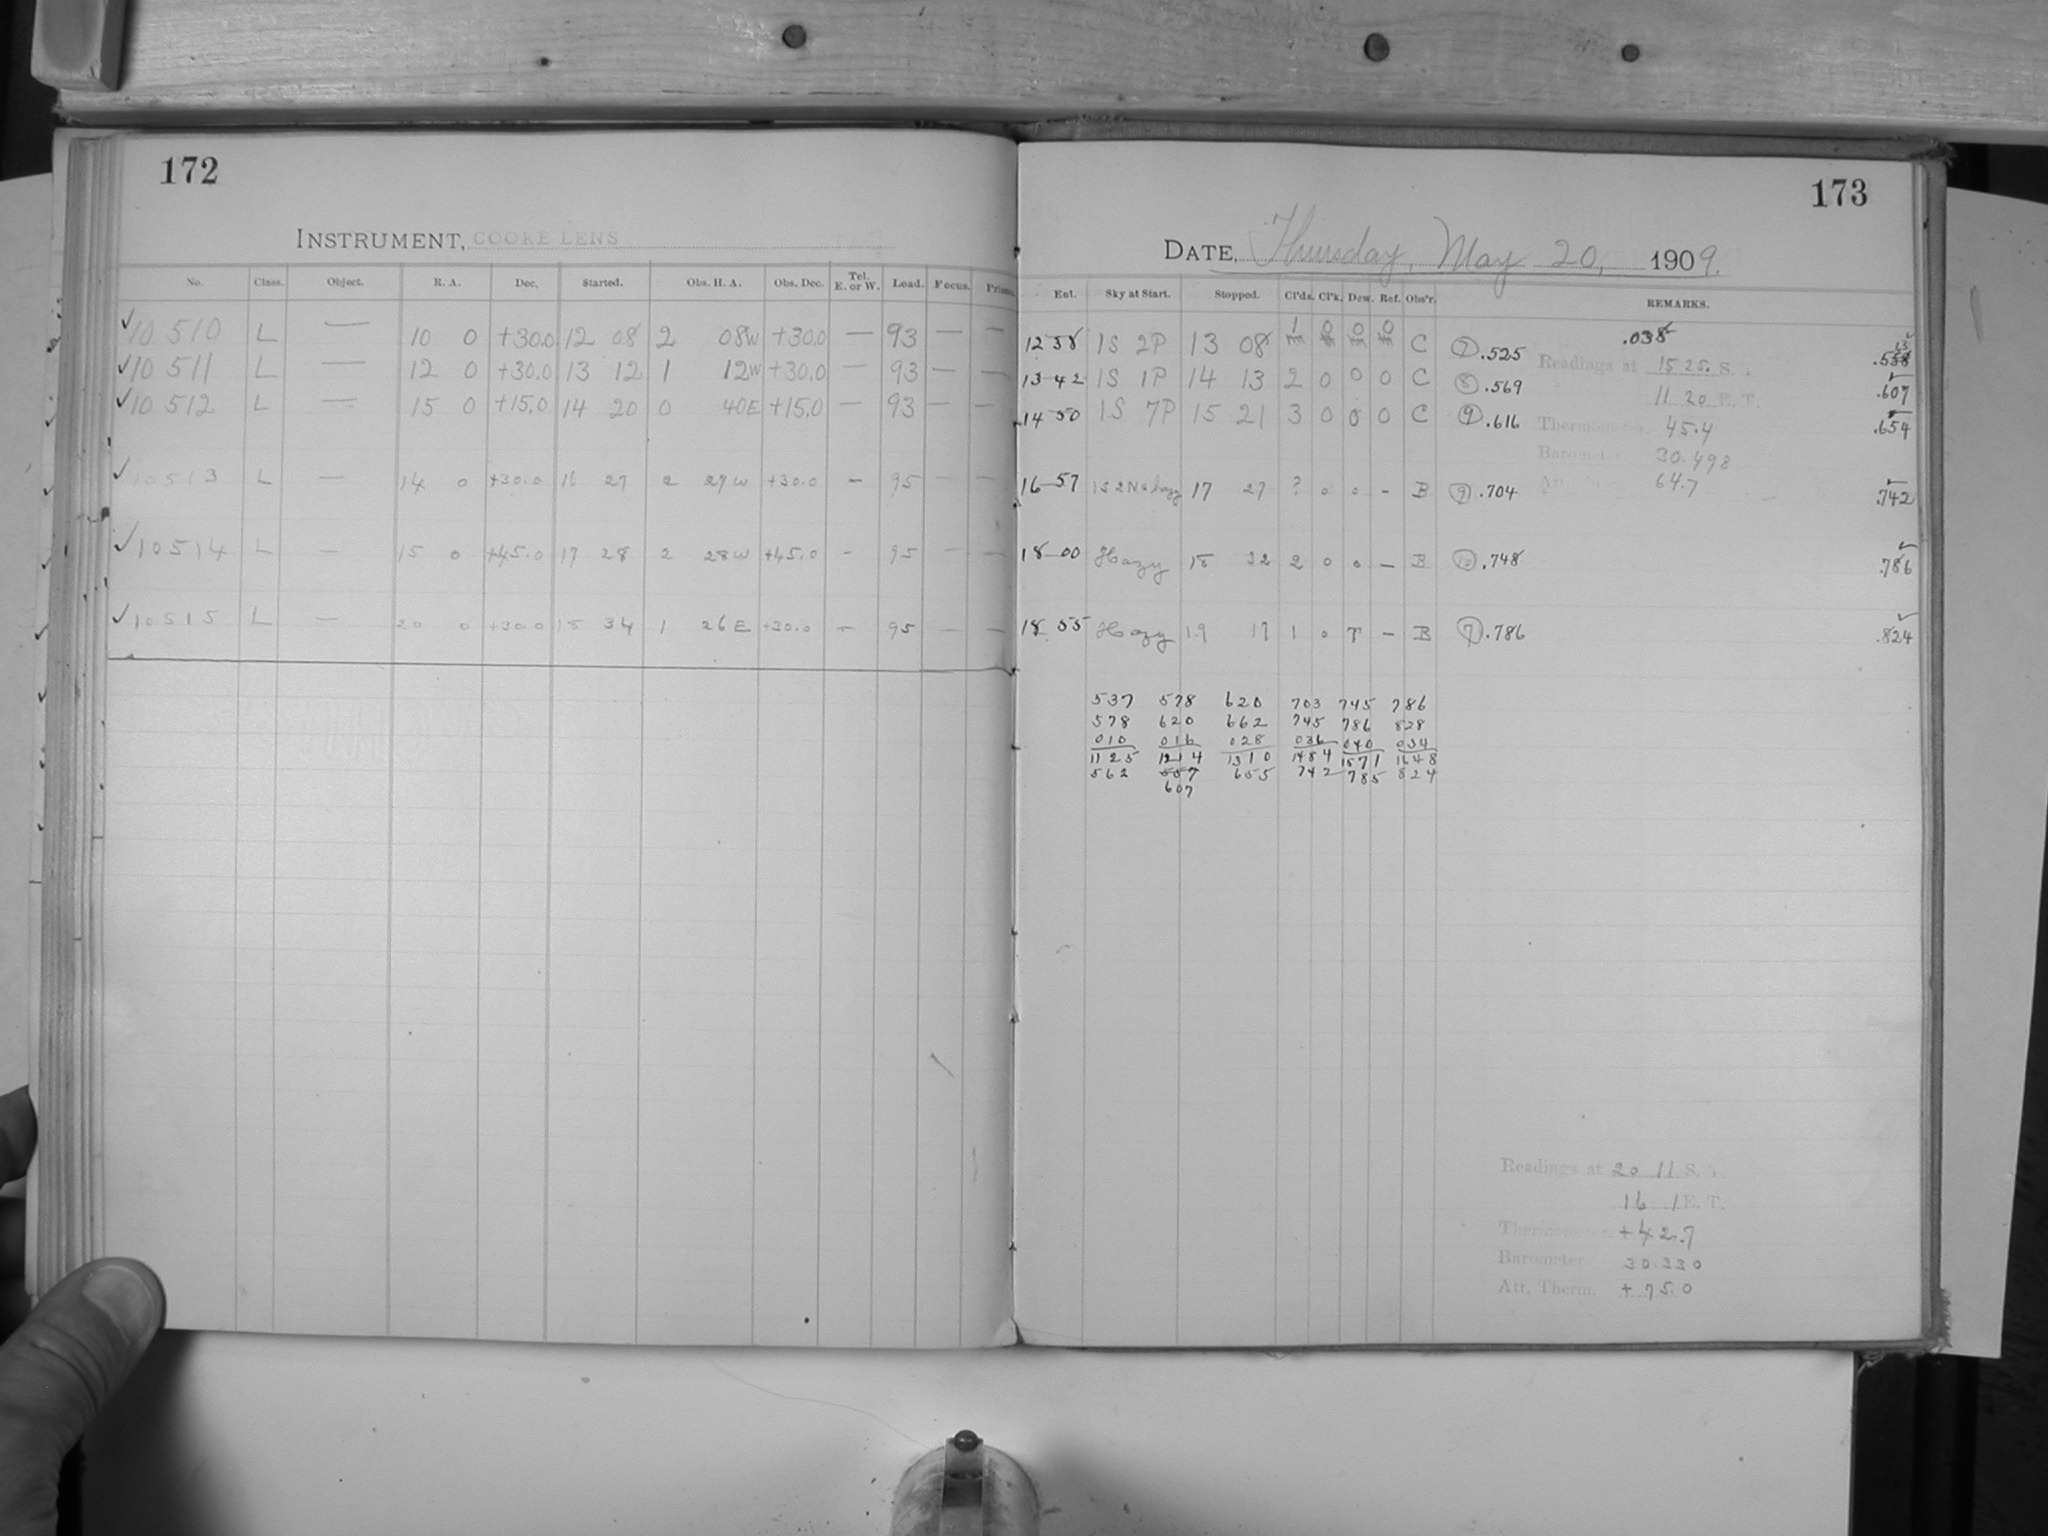 172
INSTRUMENT, COOKE LENS
No. Class. Object. R. A. Dec. Started. Obs. H. A. Obs. Dec. Tel. E. or W. Load. Focus. Prism.
✓10 510 L — 10 0 +30.0 12 08 2 08W +30.0 — 93 — —
✓10 511 L — 12 0 +30.0 13 12 1 12W +30.0 — 93 — —
✓10 512 L — 15 0 +15.0 14 20 0 40E +15.0 — 93 — —
✓10513 L — 14 0 +30.0 16 27 2 27W +30.0 — 95 — —
✓10514 L — 15 0 +45.0 17 28 2 28W +45.0 — 95 — —
✓10515 L — 20 0 +30.0 18 34 1 26E +30.0 — 95 — —
173
DATE, Thursday, May 20, 1909.
Ent. Sky at Start. Stopped. Cl'ds. Cl'k. Dew. Ref. Obs'r. REMARKS.
12 38 1S 2P 13 08 1 0 0 0 C 7 .525 .038 .558
13 42 1S 1P 14 13 2 0 0 0 C 8 .569 .607
14 50 1S 7P 15 21 3 0 0 0 C 9 .616 .654
Readings at 15 25. S.
11 20 E. T.
Thermometer. 45.4
Barometer 30.498
64.7
16 57 1S 2N hazy 17 27 ? 0 0 - B 9 .704 .742
18 00 Hazy 18 32 2 0 0 — B 10 .748 .786
18 55 Hazy 19 17 1 0 T — B 7 .786 .824
537 578 620 703 745 786
578 620 662 745 786 828
010 016 028 036 040 034
1125 1214 1310 1484 1571 1648
562 557 655 742 785 824
607
Readings at 20 11 S. T.
16 1 E. T.
Thermometer. +42.7
Barometer. 30.330
Att. Therm. +75.0